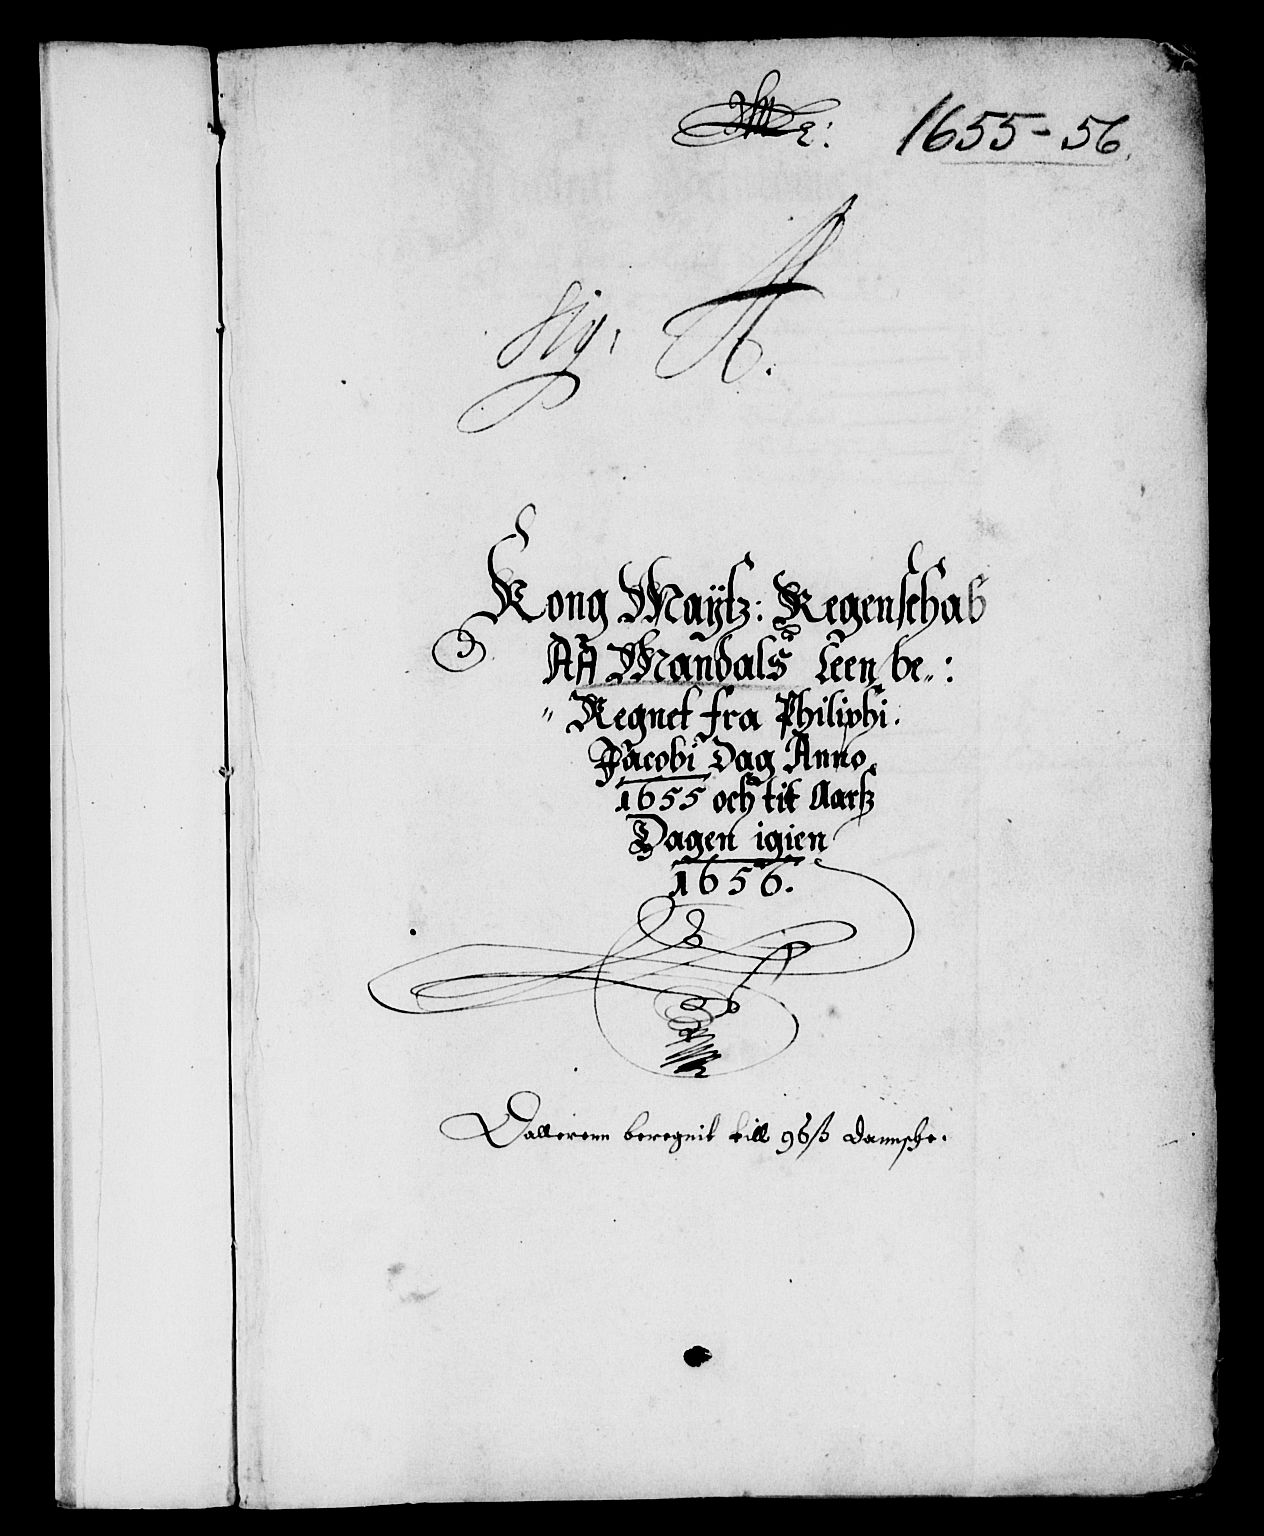 1655-56.
Sig: A.
Kong Maÿtz: Regenschab
Af Mandals Leen be„:
„Regnet fra Philiphi.
Jacobi Dag Anno
1655 och til Aarsz
Dagen igien
1656.
Dallerenn beregnit till 96 ß dannske.